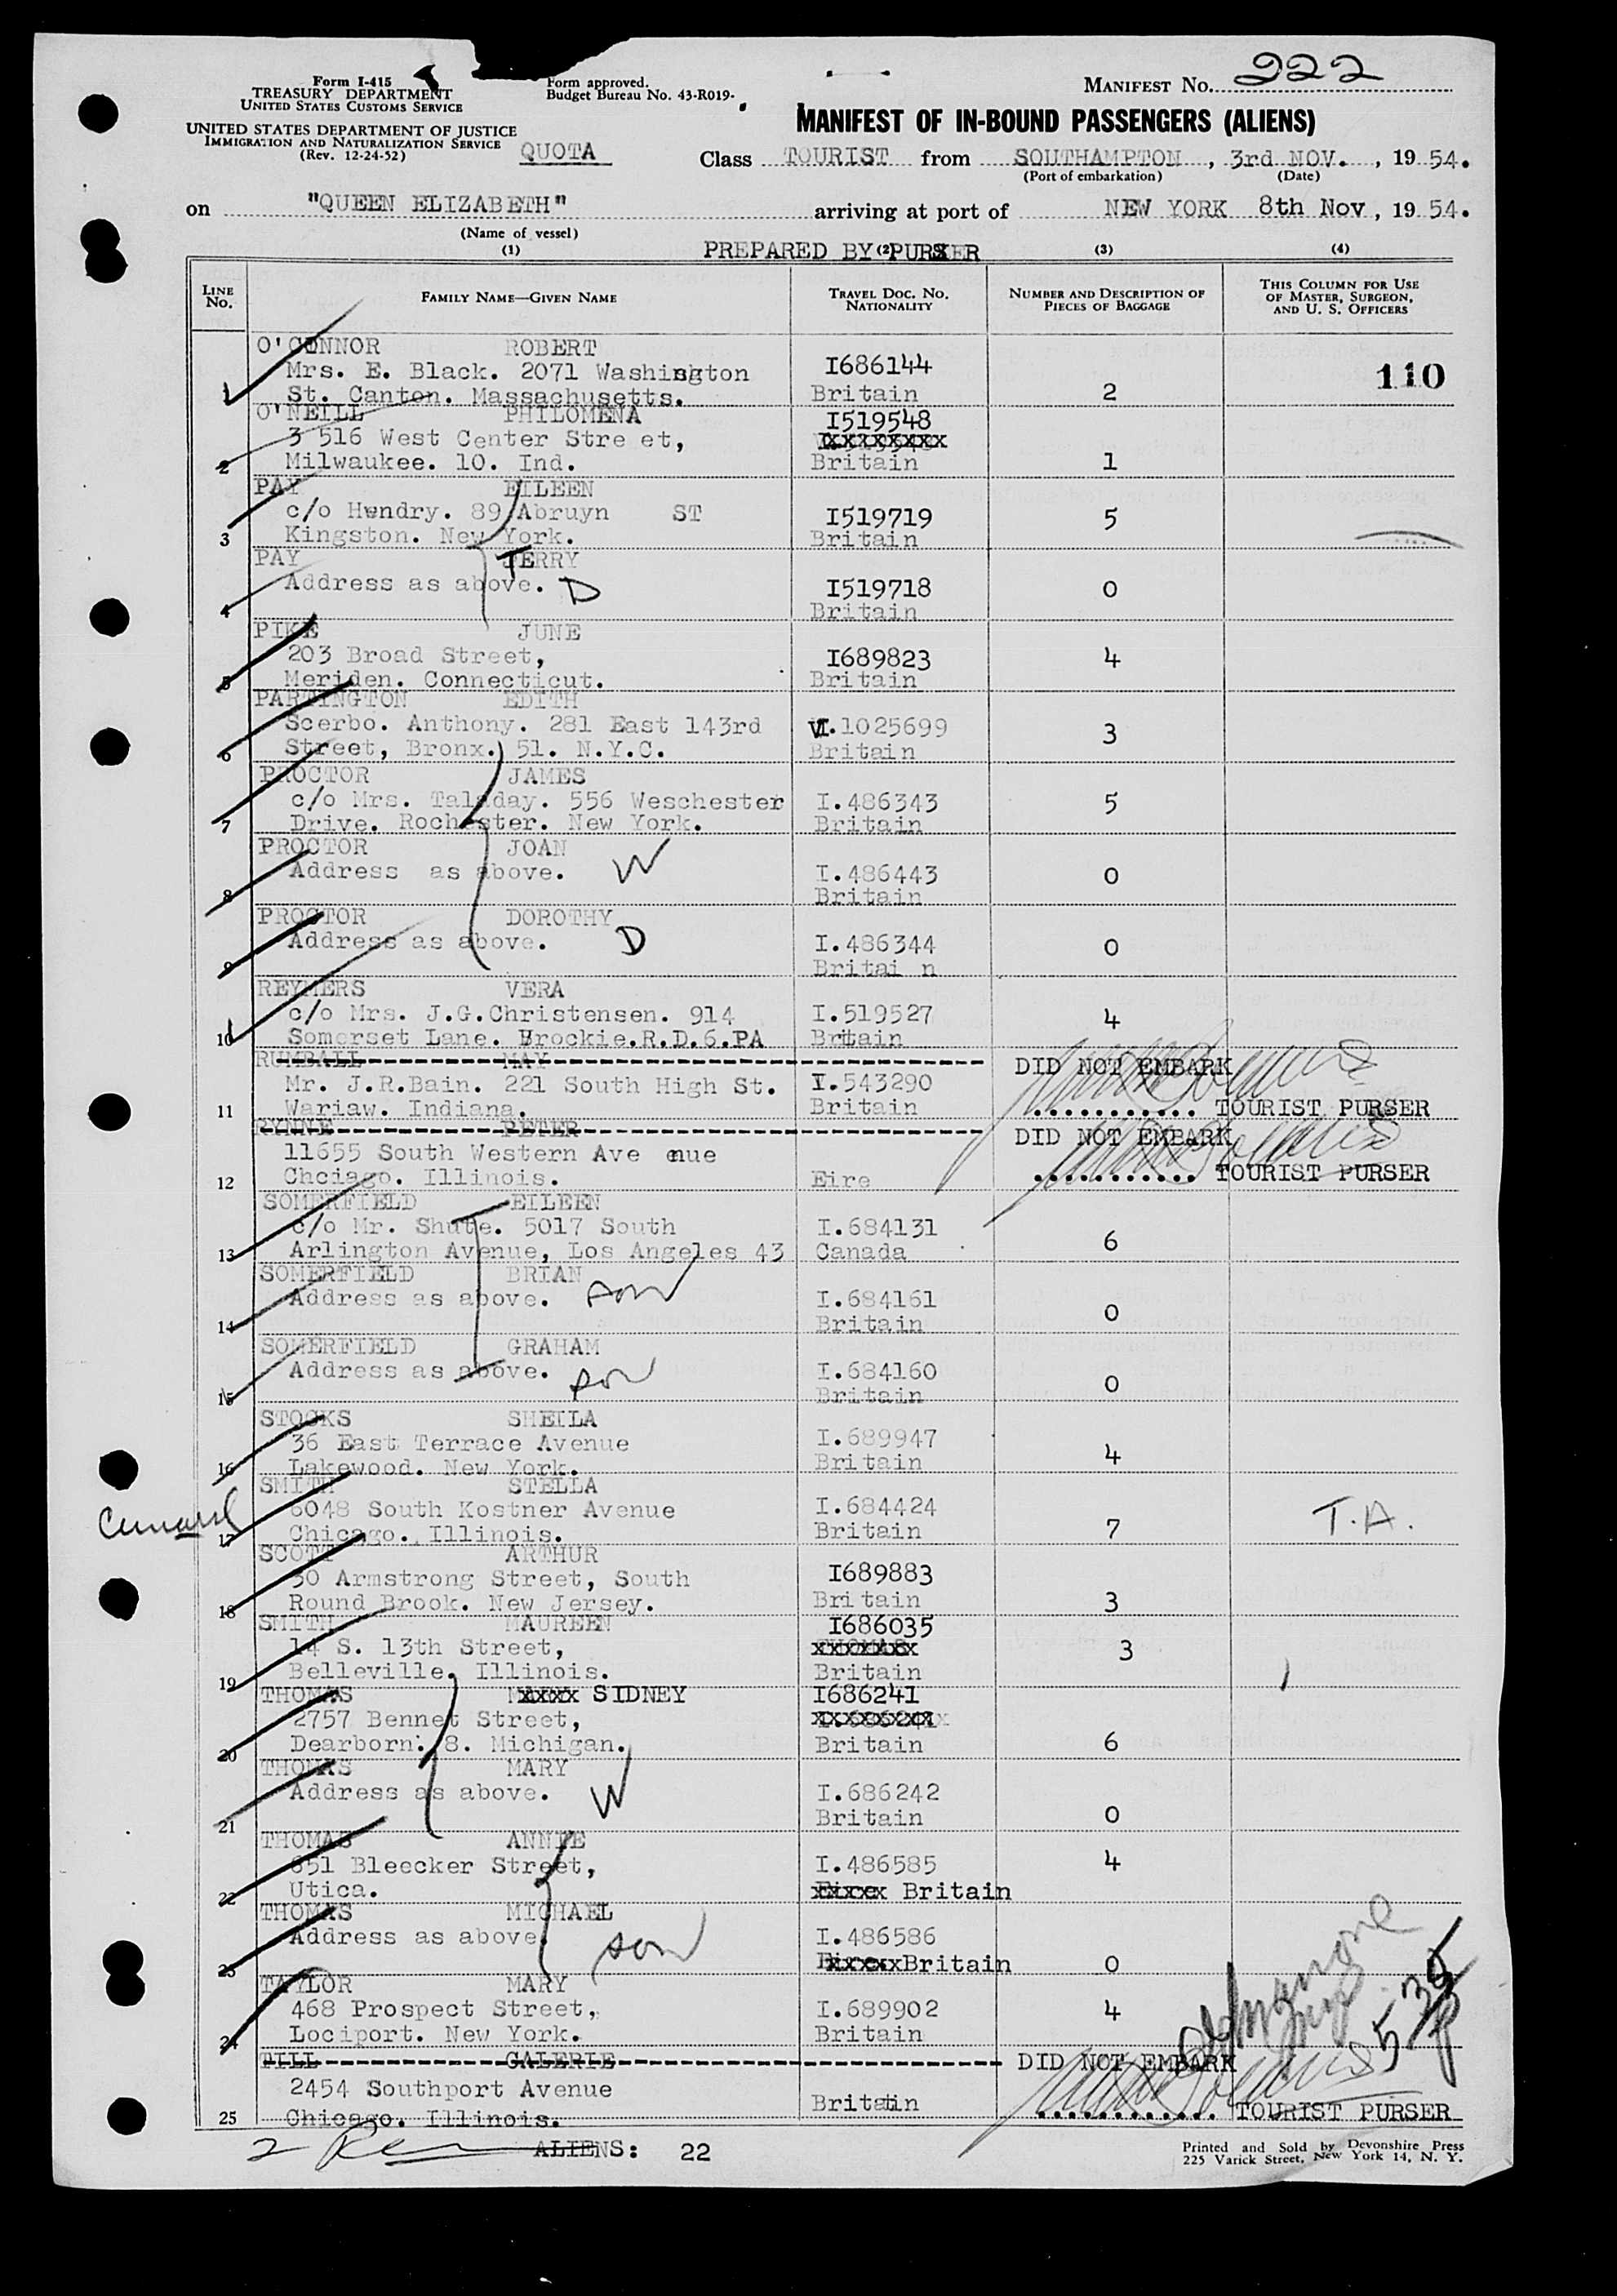 Form I-415
TREASURY DEPARTMENT
UNITED STATES CUSTOMS SERVICE
Form approved.
Budget Bureau No. 43-R019-
MANIFEST No. 222
UNITED STATES DEPARTMENT OF JUSTICE
IMMIGRATION AND NATURALIZATION SERVICE
(Rev. 12-24-52)
QUOTA
MANIFEST OF IN-BOUND PASSENGERS (ALIENS)
Class TOURIST from SOUTHAMPTON, 3rd NOV., 1954.
(Port of embarkation) (Date)
on "QUEEN ELIZABETH" arriving at port of NEW YORK 8th Nov, 1954.
(Name of vessel)
(1) PREPARED BY (2) PURSER (3) (4)
LINE No. FAMILY NAME—GIVEN NAME TRAVEL DOC. No. NATIONALITY NUMBER AND DESCRIPTION OF PIECES OF BAGGAGE THIS COLUMN FOR USE OF MASTER, SURGEON, AND U. S. OFFICERS
O'CONNOR ROBERT
Mrs. E. Black. 2071 Washington I686144 110
1 St. Canton. Massachusetts. Britain 2
O'NEILL PHILOMENA I519548
3 516 West Center Stre et, xxxxxxxx
2 Milwaukee. 10. Ind. Britain 1
PAY EILEEN
c/o Hendry. 89 Abruyn ST I519719 5
3 Kingston. New York. Britain
PAY TERRY
Address as above. D I519718 0
4 Britain
PIKE JUNE
203 Broad Street, I689823 4
5 Meriden. Connecticut. Britain
PARTINGTON EDITH
Scerbo. Anthony. 281 East 143rd VI.1025699 3
6 Street, Bronx. 51. N.Y.C. Britain
PROCTOR JAMES
c/o Mrs. Talsday. 556 Weschester I.486343 5
7 Drive. Rochester. New York. Britain
PROCTOR JOAN
Address as above. W I.486443 0
8 Britain
PROCTOR DOROTHY
Address as above. D I.486344 0
9 Britai n
REYMERS VERA
c/o Mrs. J.G.Christensen. 914 I.519527 4
10 Somerset Lane. Brockie.R.D.6.PA Britain
RUMBALL MAY DID NOT EMBARK
Mr. J.R.Bain. 221 South High St. I.543290
11 Wariaw. Indiana. Britain ........... TOURIST PURSER
RYNNE PETER DID NOT EMBARK
11655 South Western Ave enue
12 Chciago. Illinois. Eire ........... TOURIST PURSER
SOMERFIELD EILEEN
c/o Mr. Shute. 5017 South I.684131
13 Arlington Avenue, Los Angeles 43 Canada 6
SOMERFIELD BRIAN
Address as above. son I.684161 0
14 Britain
SOMERFIELD GRAHAM
Address as above. son I.684160 0
15 Britain
STOCKS SHEILA
36 East Terrace Avenue I.689947
16 Lakewood. New York. Britain 4
SMITH STELLA
Cunard 6048 South Kostner Avenue I.684424 T.A.
17 Chicago. Illinois. Britain 7
SCOTT ARTHUR
30 Armstrong Street, South I689883
18 Round Brook. New Jersey. Britain 3
SMITH MAUREEN I686035
14 S. 13th Street, xxxxxxx 3
19 Belleville. Illinois. Britain
THOMAS xxxx SIDNEY I686241
2757 Bennet Street, xxxxxxxxx
20 Dearborn. 8. Michigan. Britain 6
THOMAS MARY
Address as above. W I.686242
21 Britain 0
THOMAS ANNIE
651 Bleecker Street, I.486585 4
22 Utica. xxxxx Britain
THOMAS MICHAEL
Address as above son I.486586
23 xxxxxBritain 0
TAYLOR MARY
468 Prospect Street, I.689902 4
24 Lociport. New York. Britain
TILL GALERIE DID NOT EMBARK
2454 Southport Avenue
Britain
25 Chicago. Illinois. ............ TOURIST PURSER
2 ALIENS: 22
Printed and Sold by Devonshire Press
225 Varick Street, New York 14, N. Y.